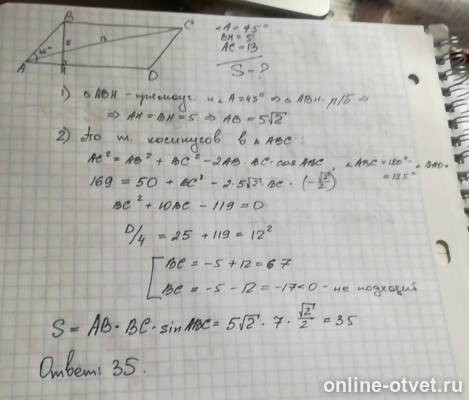 B C
A H D
45°
5
13
∠A = 45°
BH = 5
AC = 13
S - ?
1) △ABH - прямоуг. и ∠A = 45° ⇒ △ABH - р/б ⇒
⇒ AH = BH = 5 ⇒ AB = 5√2
2) По т. косинусов в △ABC:
AC² = AB² + BC² - 2AB · BC · cos ABC, ∠ABC = 180° - ∠BAD =
= 135°
169 = 50 + BC² - 2·5√2·BC · (-√2/2)
BC² + 10BC - 119 = 0
D/4 = 25 + 119 = 12²
BC = -5 + 12 = 7
BC = -5 - 12 = -17 < 0 - не подходит
S = AB · BC · sin ABC = 5√2 · 7 · √2/2 = 35
Ответ: 35.
online-otvet.ru